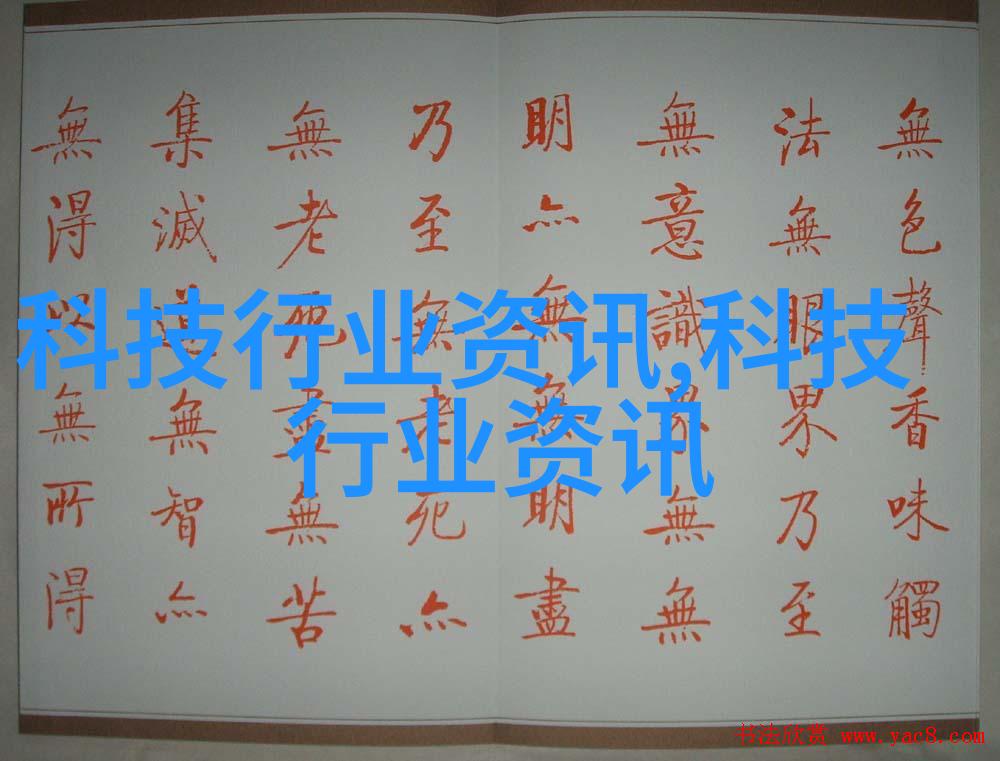 無色聲香味觸
法無眼界乃至
無意識界無無
明亦無無明盡
乃至無老死亦
無老死盡無苦
集滅道無智亦
無得以無所得
科技行业资讯,科技
行业资讯
书法欣赏 www.yac8.com